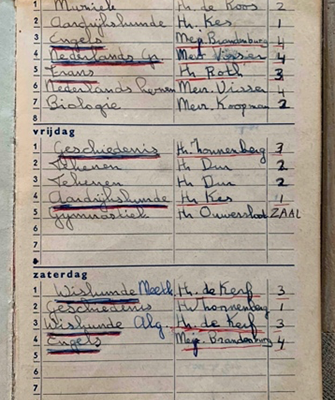 1 Muziek Hr. de Koos 2
2 Aardrijkskunde Hr. Kes 1
3 Engels Mej. Brandenburg 4
4 Nederlands Mevr Visser 4
5 Frans Hr Roth 3
6 Nederlands Mevr. Visser 4
7 Biologie Mevr. Koopman 2
8
vrijdag
1 Geschiedenis Hr. Thonnenberg 3
2 Tekenen Hr Dur 2
3 Tekenen Hr Dur 2
4 Aardrijkskunde Hr Kes 1
5 Gymnastiek Hr Ouwersloot ZAAL
6
7
8
zaterdag
1 Wiskunde Meetk. Hr. de Kerf 3
2 Geschiedenis Hr Thonnenberg 1
3 Wiskunde Alg. Hr. de Kerf 3
4 Engels Mej. Brandenburg 4
5
6
7